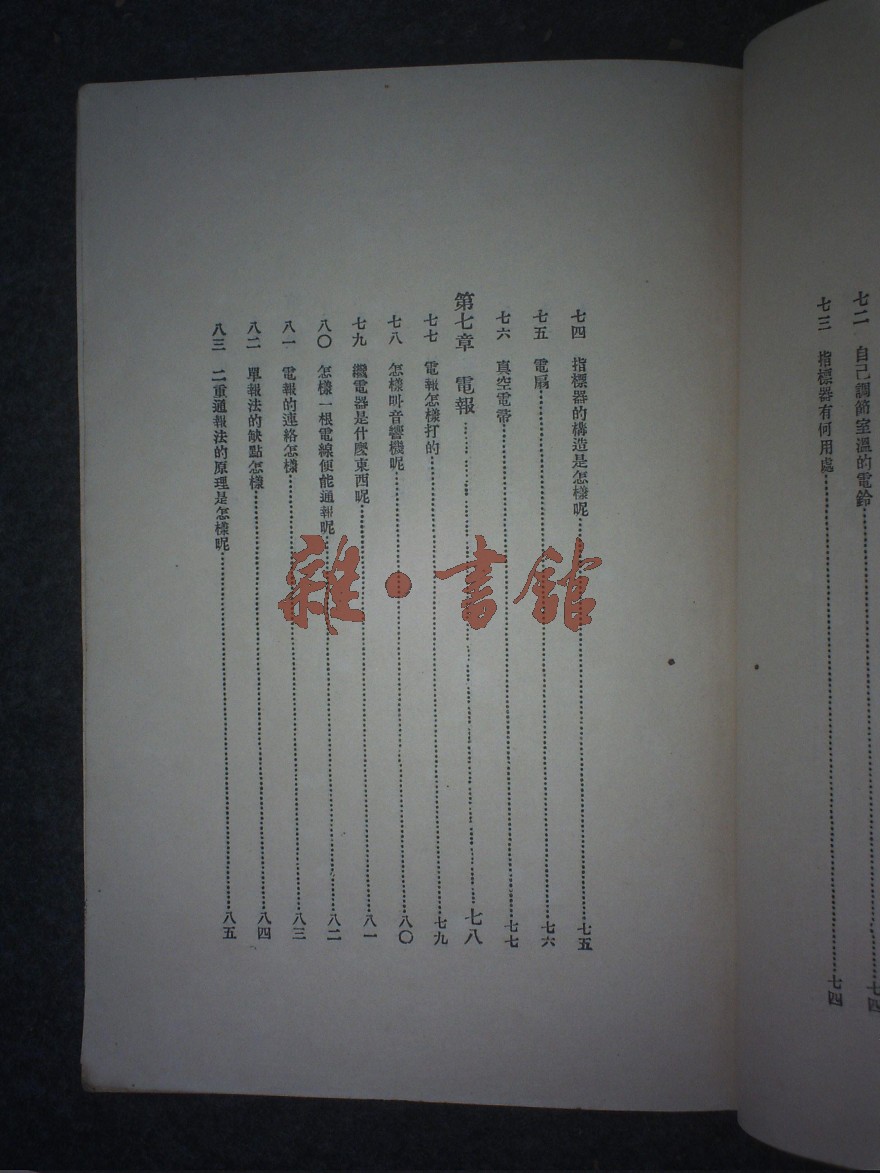 七二　自己調節室溫的電鈴……七四
七三　指標器有何用處……七四
七四　指標器的構造是怎樣呢……七五
七五　電扇……七六
七六　真空電帚……七七
第七章　電報……七八
七七　電報怎樣打的……七九
七八　怎樣叫音響機呢……八〇
七九　繼電器是什麼東西呢……八一
八〇　怎樣一根電線便能通報呢……八二
八一　電報的連絡怎樣……八三
八二　單報法的缺點怎樣……八四
八三　二重通報法的原理是怎樣呢……八五
雜·書館